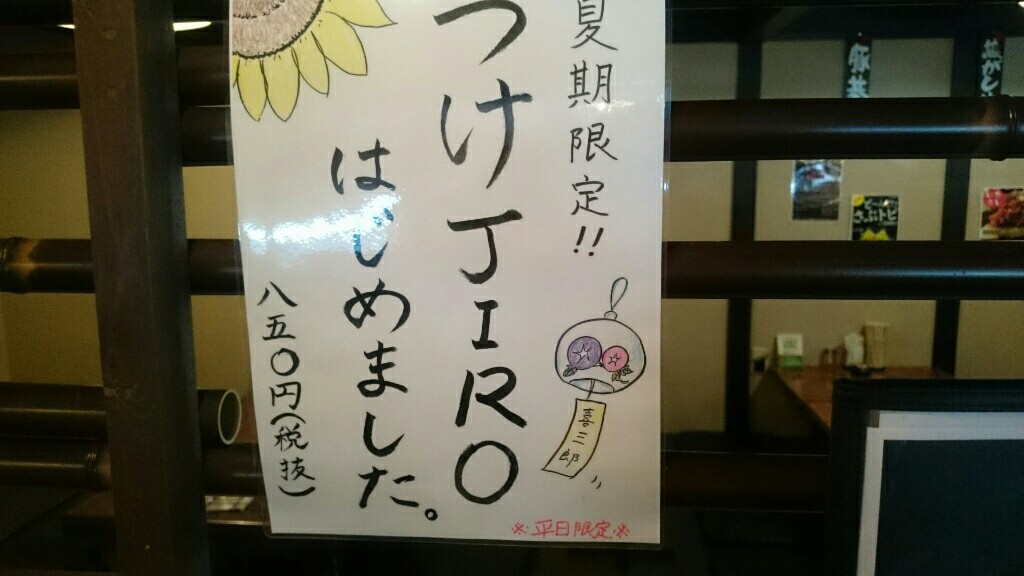 夏期限定!!
つけJIRO
はじめました。
八五〇円(税抜)
喜三郎
※平日限定※